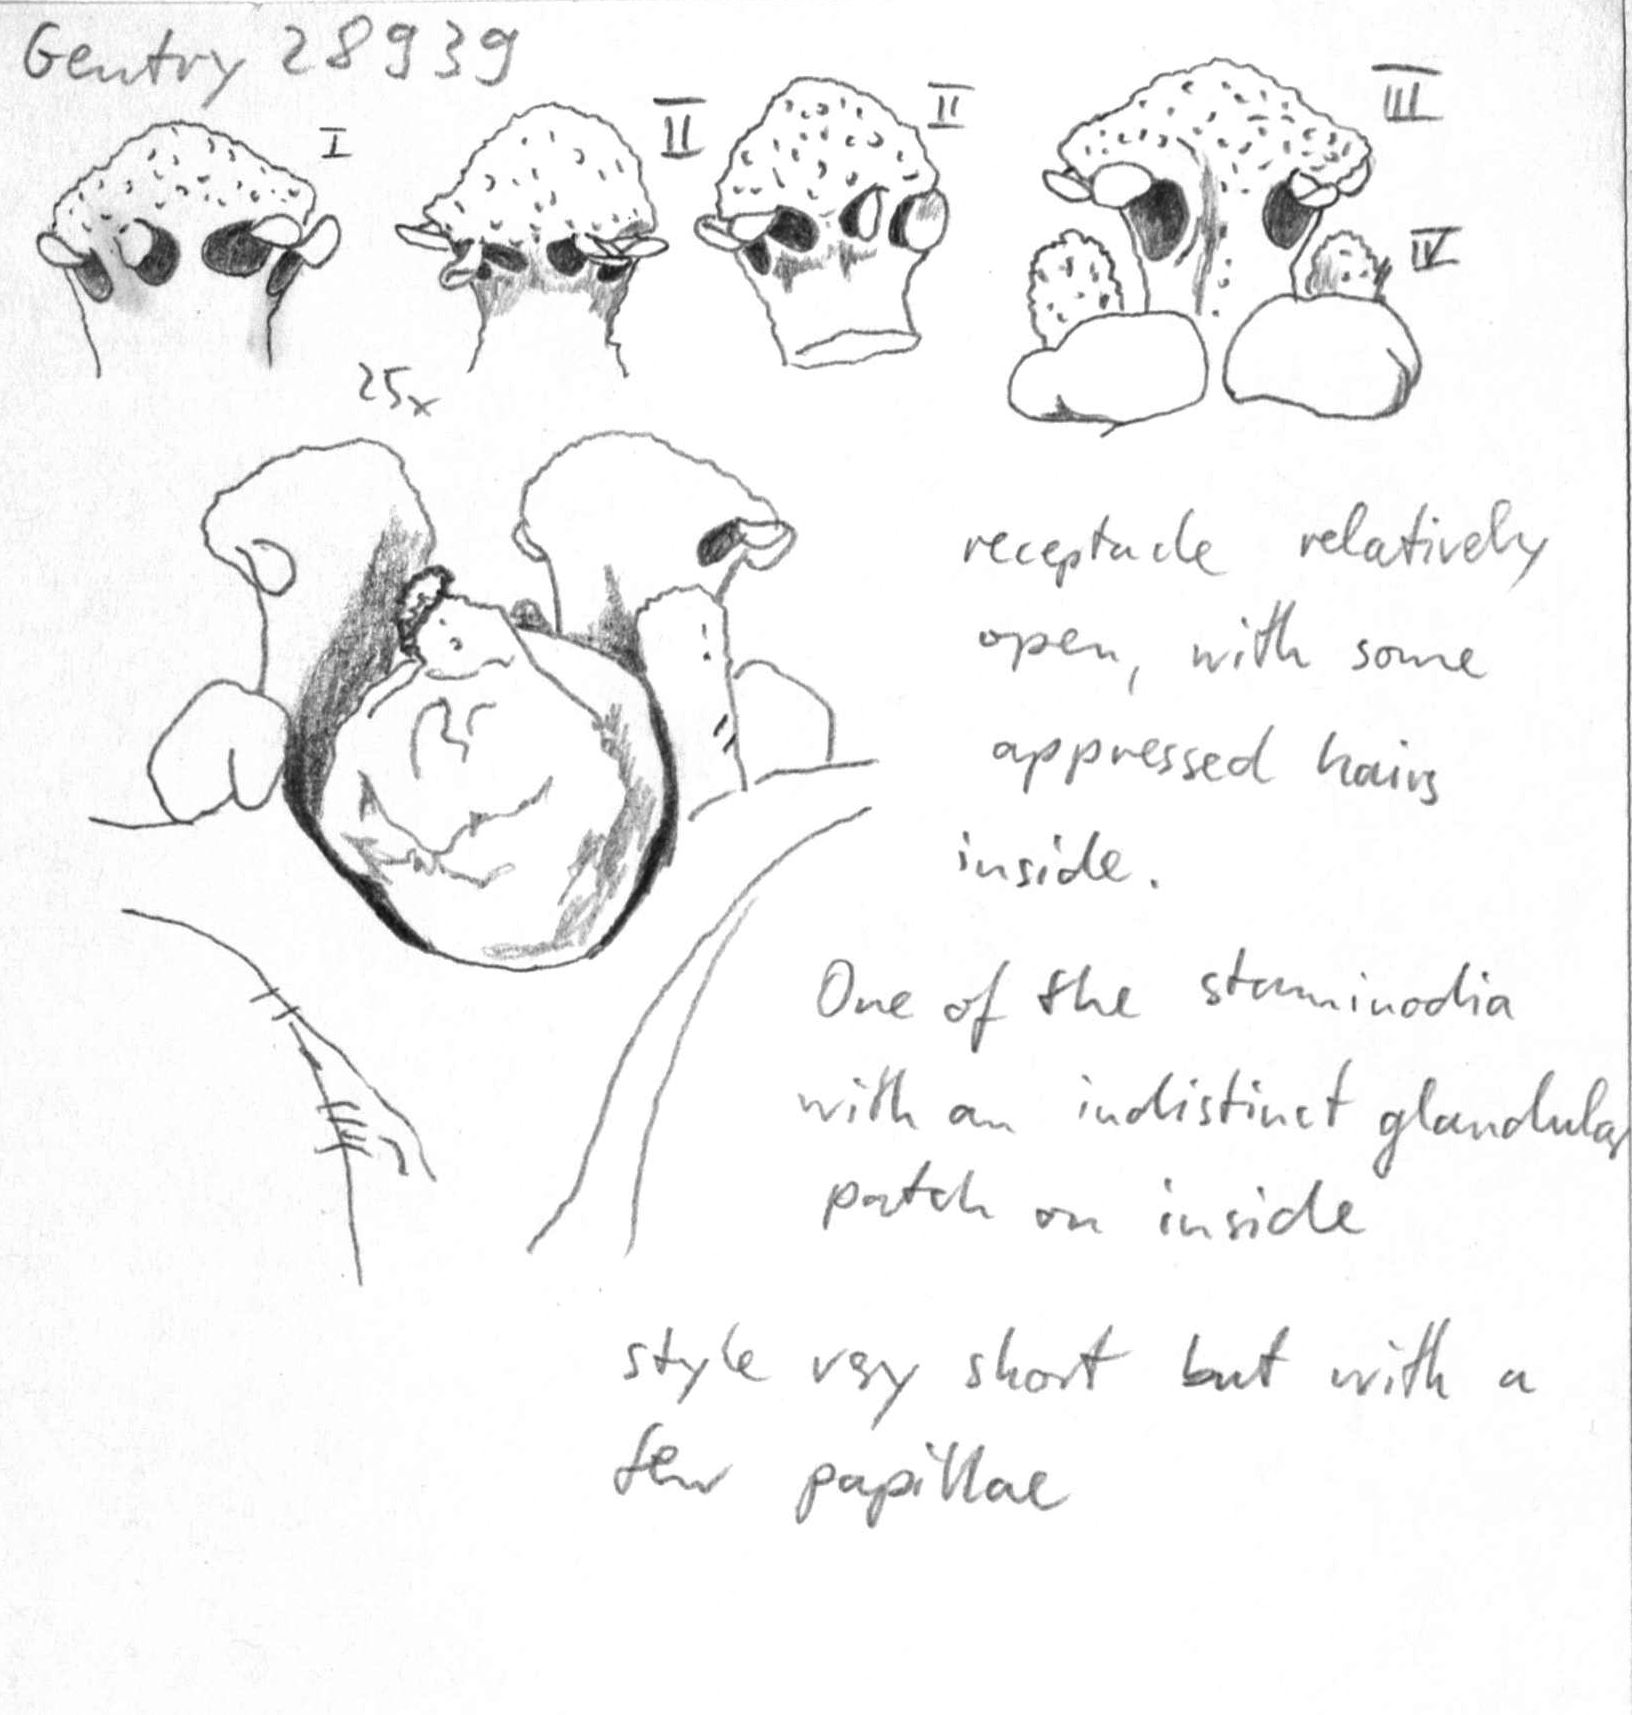 Gentry 28939
I
II
II
III
IV
25x
receptacle relatively
open, with some
appressed hairs
inside.
One of the staminodia
with an indistinct glandular
patch on inside
style very short but with a
few papillae